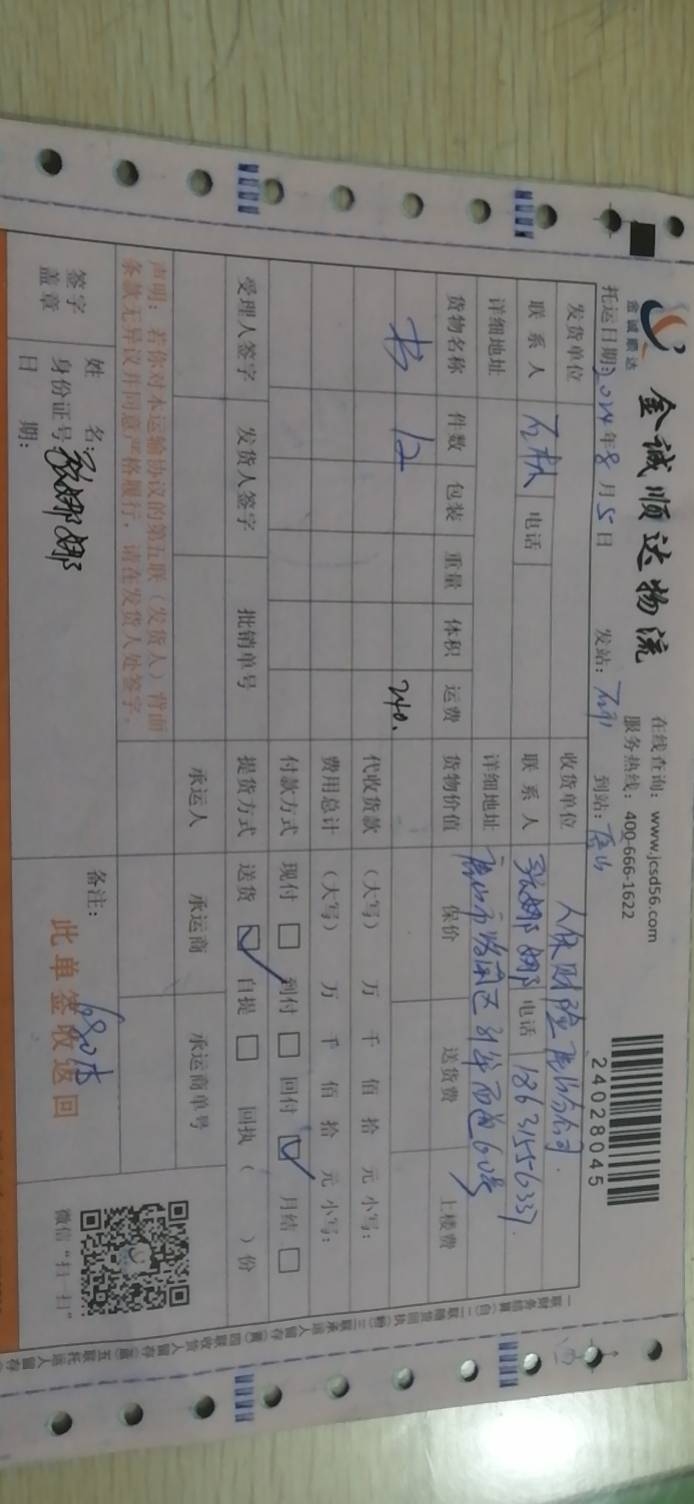 金诚顺达
金诚顺达物流
在线查询：www.jcsd56.com
服务热线：400-666-1622
24028045
托运日期：2024年8月5日 发站： 到站：唐山
发货单位 收货单位 人保财险唐山分公司.
联系人 石林 电话 联系人 张娜娜 电话 18631556337.
详细地址 详细地址 唐山市路南区新华西道60号
货物名称 件数 包装 重量 体积 运费 货物价值 保价 送货费 上楼费
书 12 240.
代收货款 （大写） 万 千 佰 拾 元 小写：
费用总计 （大写） 万 千 佰 拾 元 小写：
付款方式 现付 □ 到付 □ 回付 ☑ 月结 □
受理人签字 发货人签字 批销单号 提货方式 送货 ☑ 自提 □ 回执（ ）份
承运人 承运商 承运商单号
声明：若你对本运输协议的第五联（发货人）背面
条款无异议并同意严格履行，请在发货人处签字。
签字
盖章
姓 名：
身份证号：张娜娜
日 期：
备注：
680本
此单签收返回
微信“扫一扫”